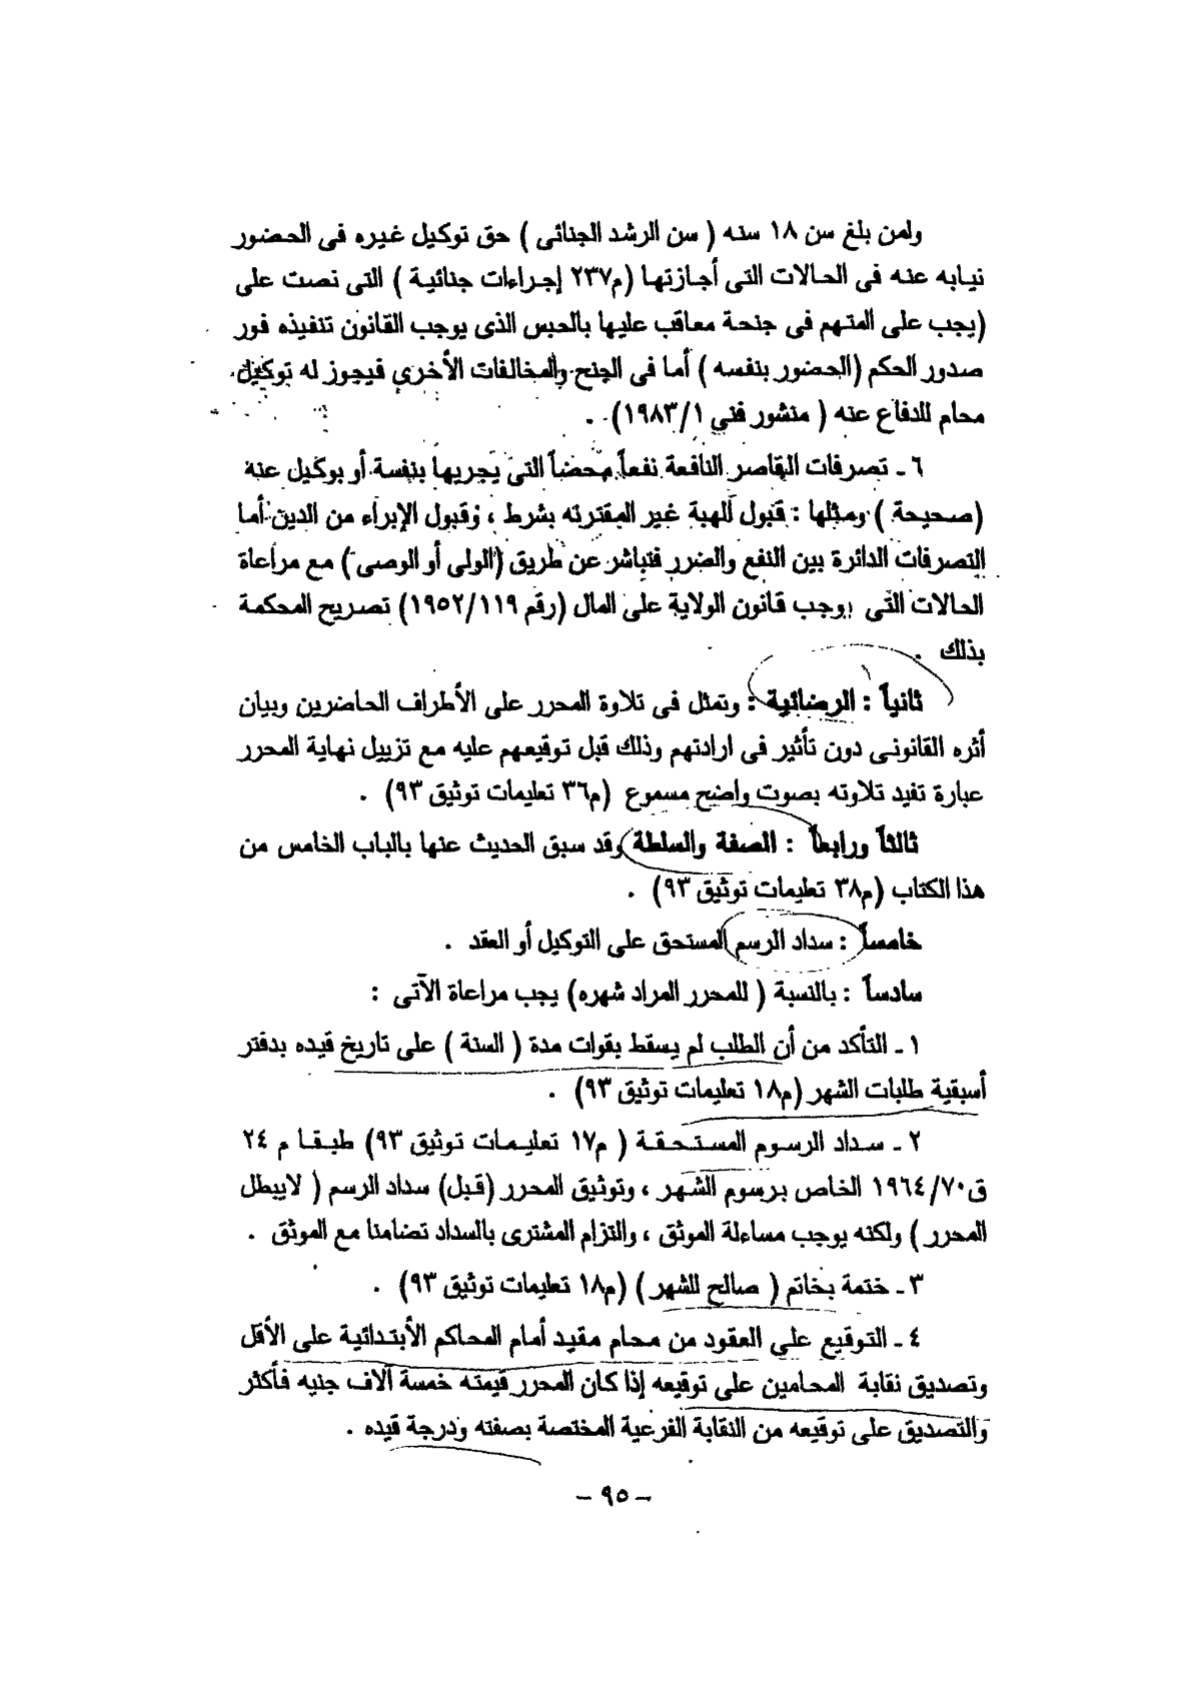 ولمن بلغ سن ١٨ سنه ( سن الرشد الجنائى ) حق توكيل غيره فى الحضور
نيابه عنه فى الحالات التى أجازتها (م٢٣٧ إجراءات جنائية ) التى نصت على
(يجب على المتهم فى جنحة معاقب عليها بالحبس الذى يوجب القانون تنفيذه فور
صدور الحكم (الحضور بنفسه ) أما فى الجنح والمخالفات الأخرى فيجوز له توكيل
محام للدفاع عنه ( منشور فنى ١٩٨٣/١) .
٦ ـ تصرفات القاصر النافعة نفعاً محضاً التى يجريها بنفسة أو بوكيل عنة
(صحيحة ) ومثلها : قبول الهبة غير المقترنه بشرط ، وقبول الإبراء من الدين أما
التصرفات الدائرة بين النفع والضرر فتباشر عن طريق (الولى أو الوصى) مع مراعاة
الحالات التى يوجب قانون الولاية على المال (رقم ١٩٥٢/١١٩) تصريح المحكمة
بذلك .
ثانياً : الرضائية : وتمثل فى تلاوة المحرر على الأطراف الحاضرين وبيان
أثره القانونى دون تأثير فى ارادتهم وذلك قبل توقيعهم عليه مع تزييل نهاية المحرر
عبارة تفيد تلاوته بصوت واضح مسموع (م٣٦ تعليمات توثيق ٩٣) .
ثالثاً ورابعاً : الصفة والسلطة وقد سبق الحديث عنها بالباب الخامس من
هذا الكتاب (م٣٨ تعليمات توثيق ٩٣) .
خامساً : سداد الرسم المستحق على التوكيل أو العقد .
سادساً : بالنسبة ( للمحرر المراد شهره) يجب مراعاة الآتى :
١ ـ التأكد من أن الطلب لم يسقط بقوات مدة ( السنة ) على تاريخ قيده بدفتر
أسبقية طلبات الشهر (م١٨ تعليمات توثيق ٩٣) .
٢ ـ سداد الرسوم المستحقة ( م١٧ تعليمات توثيق ٩٣) طبقا م ٢٤
ق١٩٦٤/٧٠ الخاص برسوم الشهر ، وتوثيق المحرر (قبل) سداد الرسم ( لايبطل
المحرر ) ولكنه يوجب مساءلة الموثق ، والتزام المشترى بالسداد تضامنا مع الموثق .
٣ ـ ختمة بخاتم ( صالح للشهر ) (م١٨ تعليمات توثيق ٩٣) .
٤ ـ التوقيع على العقود من محام مقيد أمام المحاكم الأبتدائية على الأقل
وتصديق نقابة المحامين على توقيعه إذا كان المحرر قيمته خمسة آلاف جنيه فأكثر
والتصديق على توقيعه من النقابة الفرعية المختصة بصفته ودرجة قيده .
– ٩٥ –